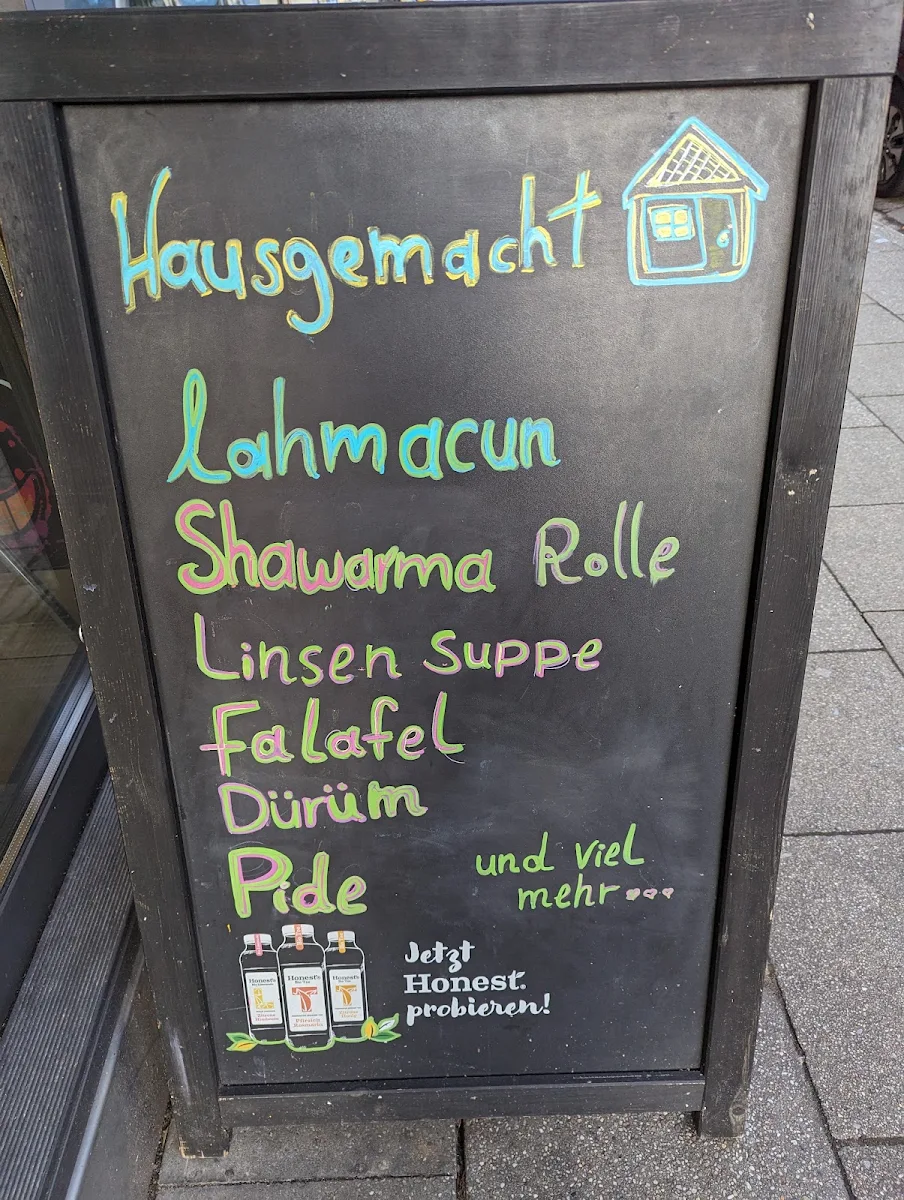 Hausgemacht
Lahmacun
Shawarma Rolle
Linsen Suppe
Falafel
Dürüm
Pide
und viel
mehr...
Jetzt
Honest.
probieren!
Honest's
Honest's
Honest's
L
T
T